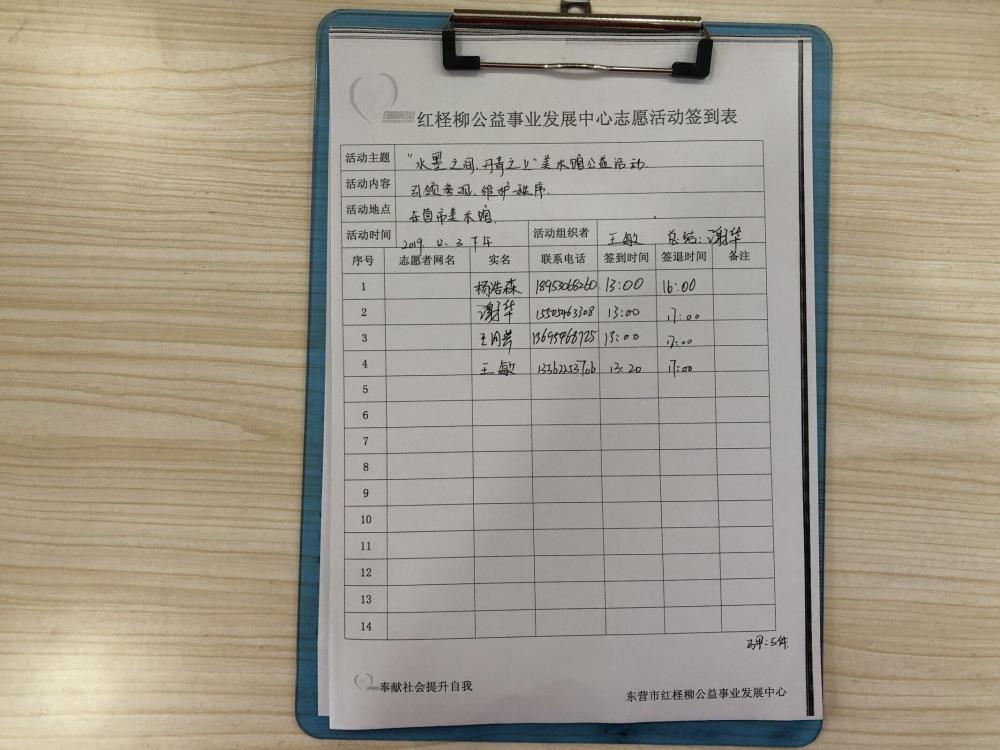 红柽柳公益事业发展中心志愿活动签到表
活动主题 "水墨之间、丹青之上"美术馆公益活动.
活动内容 引领参观、维护秩序.
活动地点 东营市美术馆.
活动时间 2019. 12. 3 下午 活动组织者 王敏 总结:谢华
序号 志愿者网名 实名 联系电话 签到时间 签退时间 备注
1 杨浩森 18953068260 13:00 16:00
2 谢华 15505463308 13:00 17:00
3 13695468725 13:00 17:00
4 王敏 13562253706 13:20 17:00
5
6
7
8
9
10
11
12
13
14
马甲:5件
奉献社会提升自我
东营市红柽柳公益事业发展中心